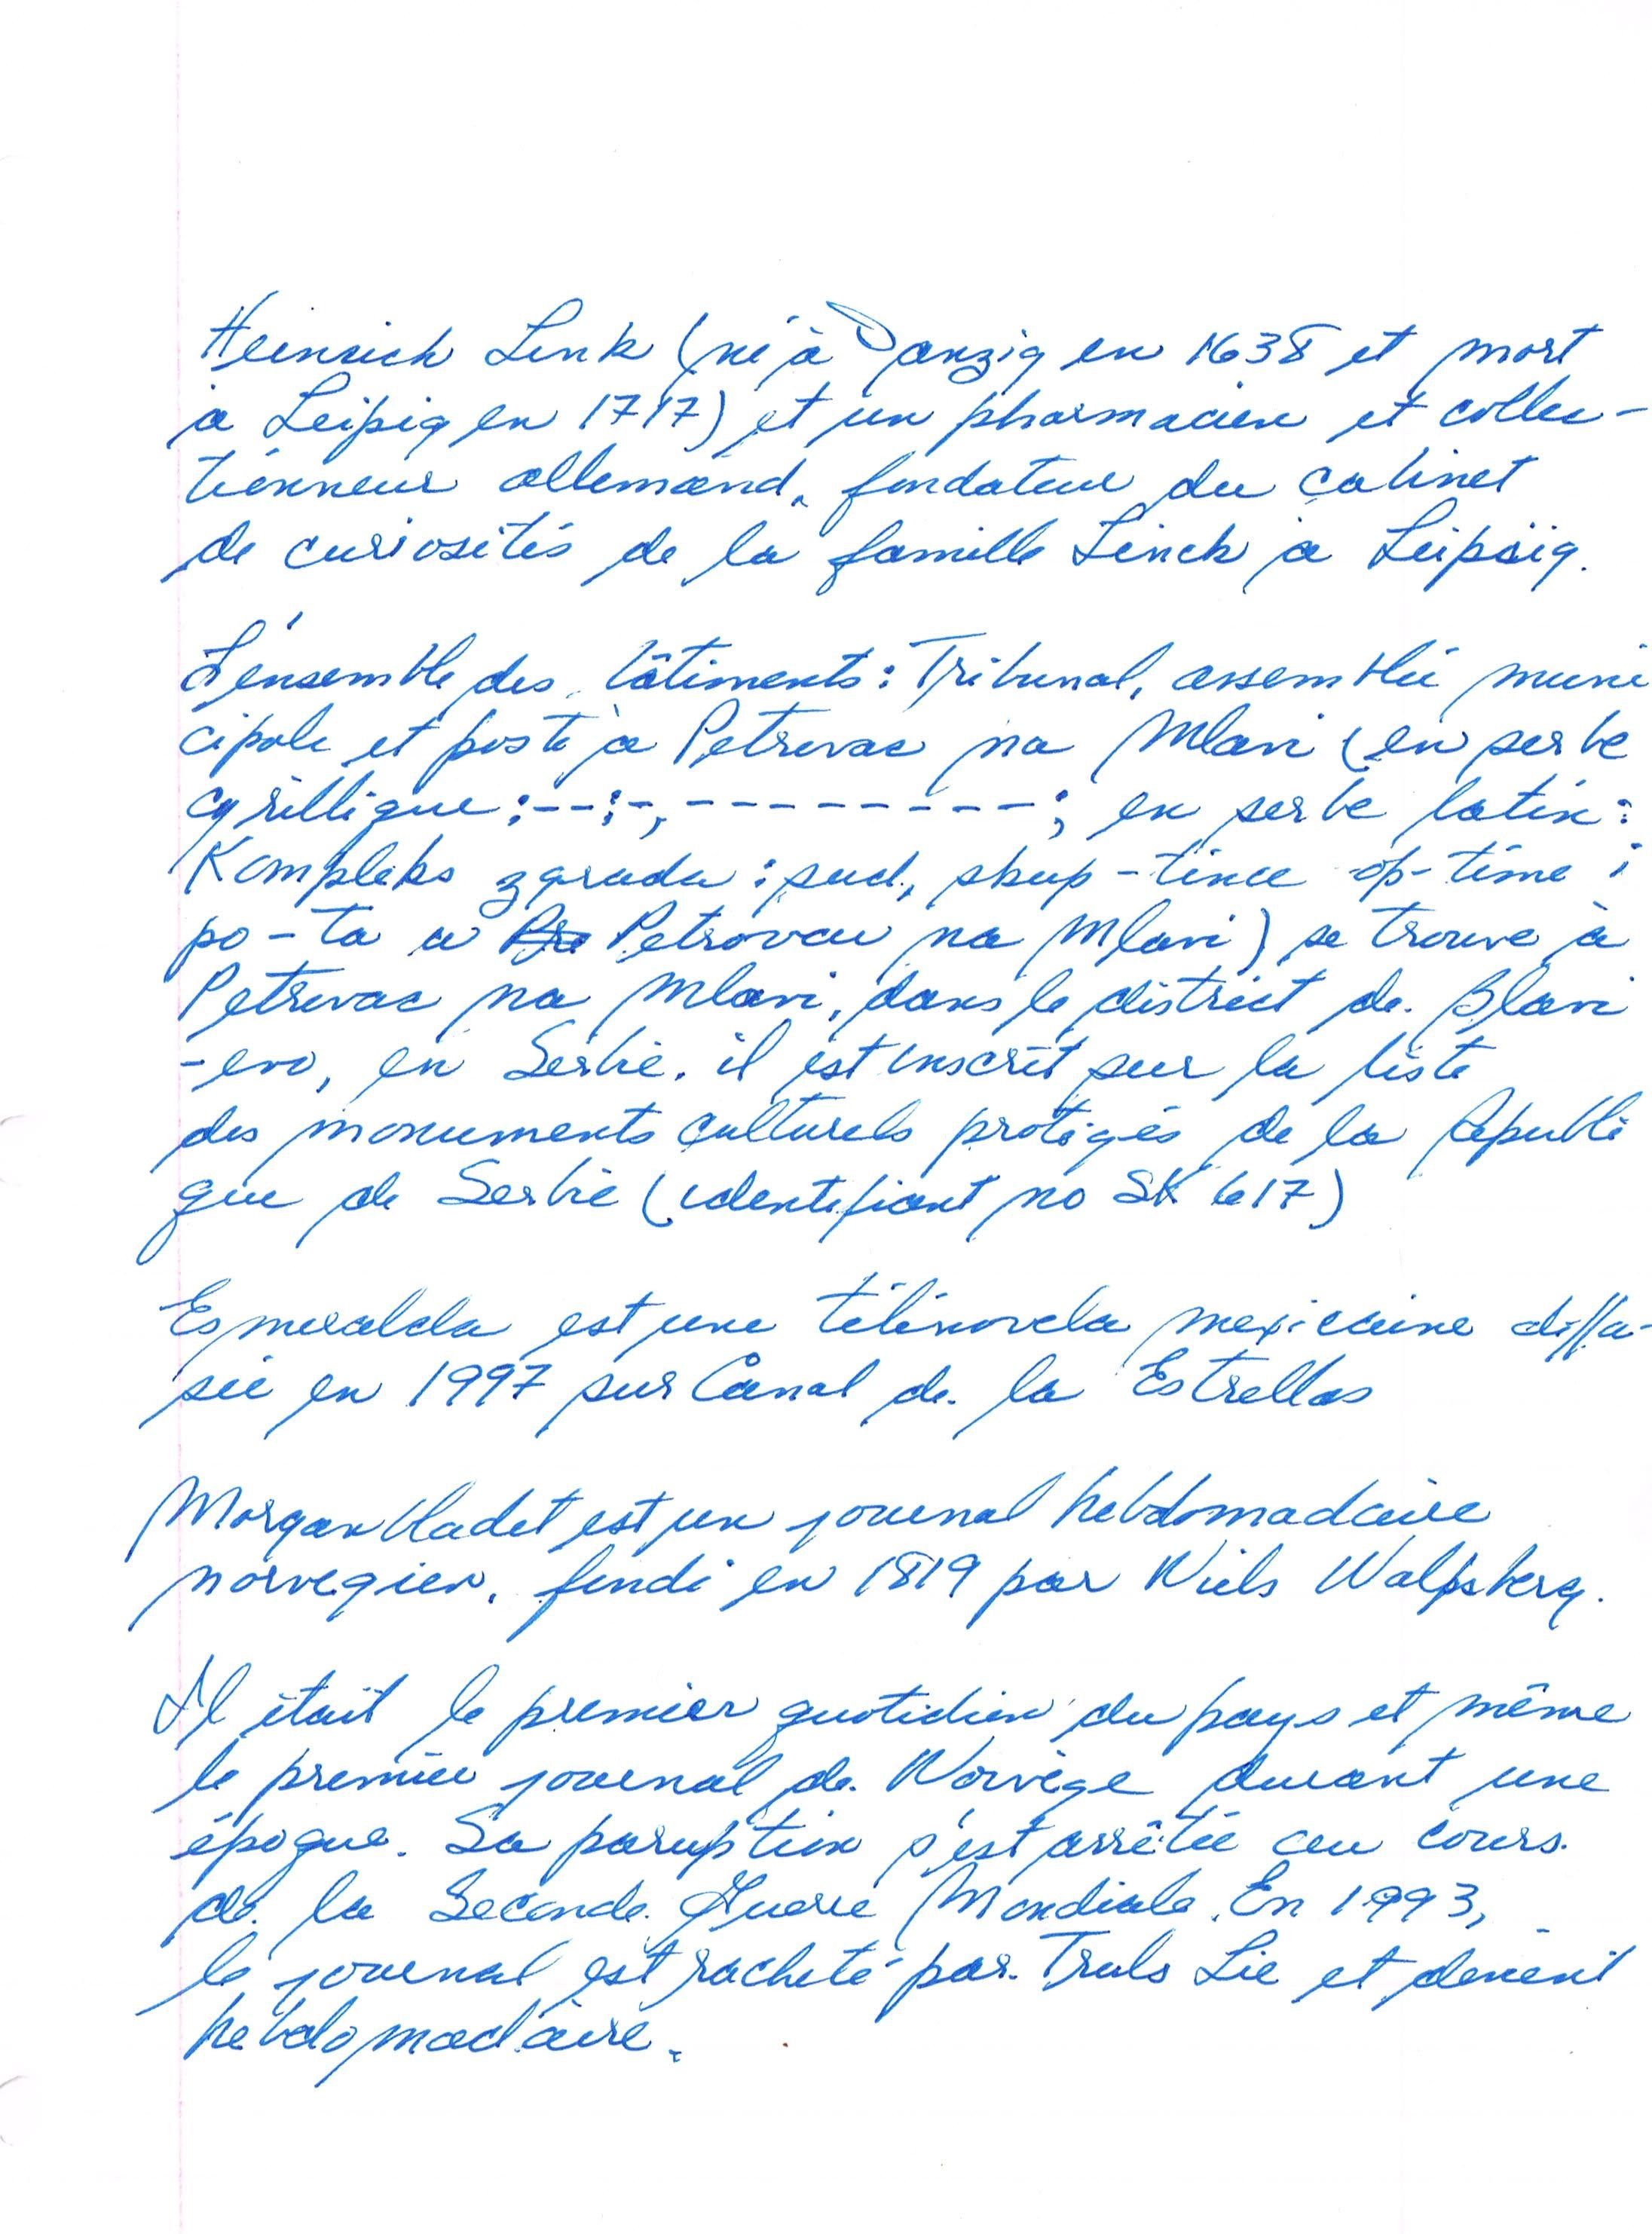 Heinrich Link (né à Danzig en 1638 et mort
à Leipig en 1717) et un pharmacien et collec-
tionneur allemand, fondateur du cabinet
de curiosités de la famille Linck à Leipsig.
L'ensemble des bâtiments : Tribunal, assemblée muni
cipale et poste à Petrovac na Mlavi (en serbe
cyrillique : -- : -, --------- ; en serbe latin :
Kompleks zgrada : sud, skup-tine op-tine i
po-ta u Petrovcu na Mlavi) se trouve à
Petrovac na Mlavi, dans le district de Blani
-evo, en Serbie. il est inscrit sur la liste
des monuments culturels protégés de la Républi
que de Serbie (identifiant no SK 617)
Esmeralda est une télénovela mexicaine diffu-
sée en 1997 sur Canal de la Estrellas
Morganbladet est un journal hebdomadaire
norvegien, fondé en 1819 par Niels Wulfsberg.
Il était le premier quotidien du pays et même
le premier journal de Norvège durant une
époque. Sa paruption s'est arrêtée au cours
de la Seconde Guerre Mondiale. En 1993,
le journal est racheté par Truls Lie et devient
hebdomadaire.